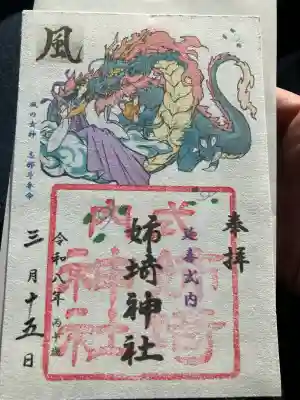 風
風の女神 志那斗弁命
奉拝
延喜式内
姉埼神社
令和八年 丙午歳
三月十五日
式内
姉埼
神社